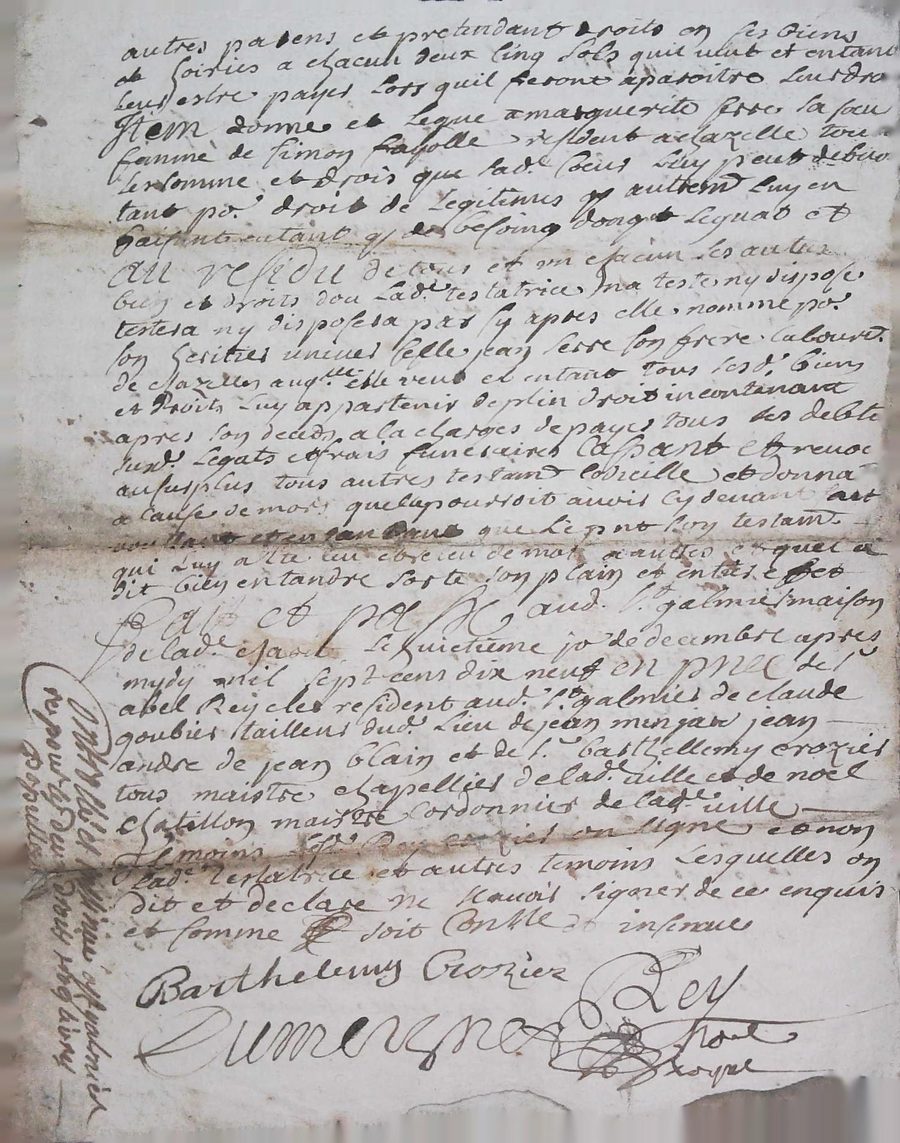 autres parens et pretendant droits on ses biens
et hoiries a chacun deux cinq sols quil veut et entant
leur estre payes lors quil feront aparoitre leur dro
Item donne et legue a marguerite serre sa soeu
famme de simon fayolle resident a chazelle tou
les somme et drois que lad.e soeur luy peut debvo
tant po.r droit de legitimes q autrem.t luy en
faisant entant q de besoing dong leguat et
Au residu de tous et un chacun ses autres
bien et droits dou lad.e testatrice na teste ny dispose
testera ny disposera par cy apres elle nomme po.r
son heritier univer selle jean serre son frere laboure.r
de chazelles auq.l elle veut et entant tous sesd. biens
et droits luy appartenir de plin droit incontenant
apres son deceds a la charges de payer tous ses debte
susd. legats et frais funeraires Cassant et revoc
au surplus tous autres testam.t codicille et donna
a cause de mort quelle pourroit avoir cy devant fait
voullant et entandant que le pnt soy testam.t
qui luy a ste leu et releu de mot a autre et quel a
dit bien entandre sorte son plain et entier effet
Fait et passe aud. S.t galmier maison
de lad.e le huictieme jo.r de decembre apres
mydy mil sept cens dix neuf en pnce de s.r
abel Rey clerc resident aud. S.t galmier de claude
goubier tailleur dud. lieu de jean jean
andre de jean blain et de s.r barthellemy crozier
tous maistre chapellier de lad.e ville et de noel
chatillon maistre cordonnier de lad.e ville
temoins Rey crozier on signe et non
lad.e testatrice et autres temoins lesquelles on
dit et declare ne scavoir signer de ce enquis
et somme soit conttle et insinue
Barthelemy Crozier
Rey
Dumergne
Not.
Royal
Controllé et insinué a St galmier
reçu pour les deux droits livres